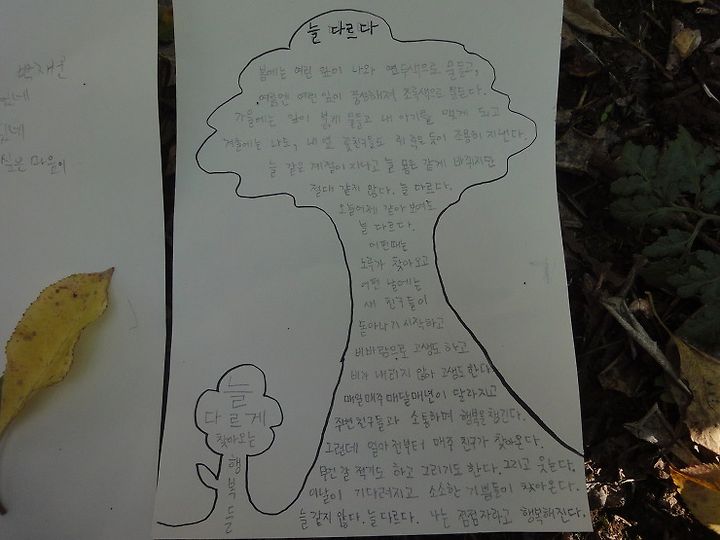 박채운
있네
있네
싶은 마음이
늘 다르다
봄에는 여린 잎이 나와 연두색으로 물들고,
여름엔 여린 잎이 풍성해져 초록색으로 물든다.
가을에는 잎이 붉게 물들고 내 아기들 맺게 되고
겨울에는 나도, 내 옆 꽃친구들도 쥐 죽은 듯이 조용히 지낸다.
늘 같은 계절이 지나고 늘 몸은 같게 바뀌지만
절대 같지 않다. 늘 다르다.
오늘어제 같아 보여도
늘 다르다.
어떤때는
노루가 찾아오고
어떤 날에는
새 친구들이
돋아나기 시작하고
비바람으로 고생도 하고
비가 내리지 않아 고생도 한다.
매일매주매달매년이 달라지고
주변 친구들과 소통하며 행복을 챙긴다.
그런데 얼마 전부터 매주 친구가 찾아온다.
무언갈 적기도 하고 그리기도 한다. 그리고 웃는다.
이날이 기다려지고 소소한 기쁨들이 찾아온다.
늘 같지 않다. 늘 다르다. 나는 점점자라고 행복해진다.
늘
다르게
찾아오는
행
복
들